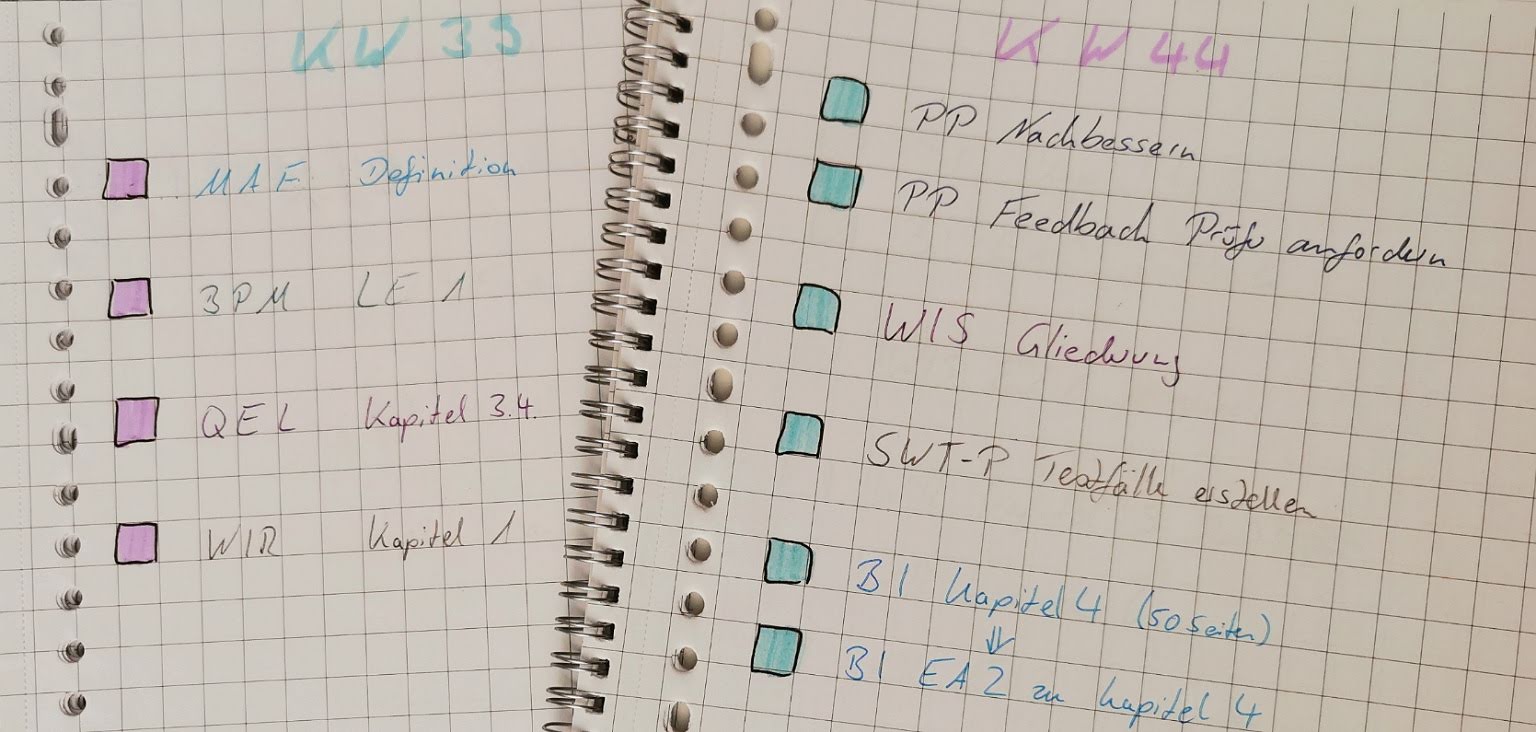 KW 33
MAF Definition
3PM LE 1
QEL Kapitel 3.4.
WIR Kapitel 1
KW 44
PP Nachbessern
PP Feedback Prüfer anfordern
WIS Gliederung
SWT-P Testfälle erstellen
BI Kapitel 4 (50 Seiten)
⇓
BI EA2 zu Kapitel 4